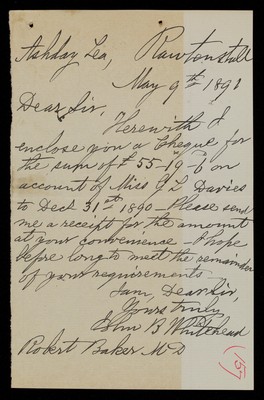 Ashday Lea, Rawtonstall
May 9th 1891
Dear Sir,
Herewith I
enclose you a Cheque for
the sum of £55-19-6 on
account of Miss E L Davies
to Dect 31st 1890 - Please send
me a receipt for the amount
at your convenience - I hope
before long to meet the remainder
of your requirements
I am, Dear Sir,
Yours truly
John B Whitehead
Robert Baker M D
(157)